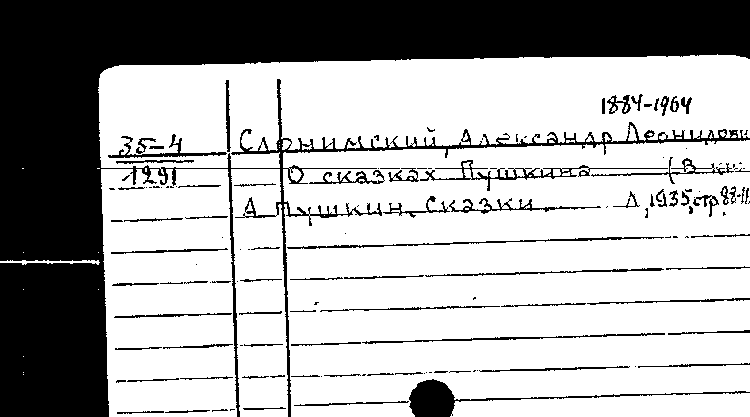 1884-1964
35-4 Слонимский, Александр Леонидови
1291 О сказках Пушкина (В кн:
А Пушкин. Сказки. Л, 1935, стр.